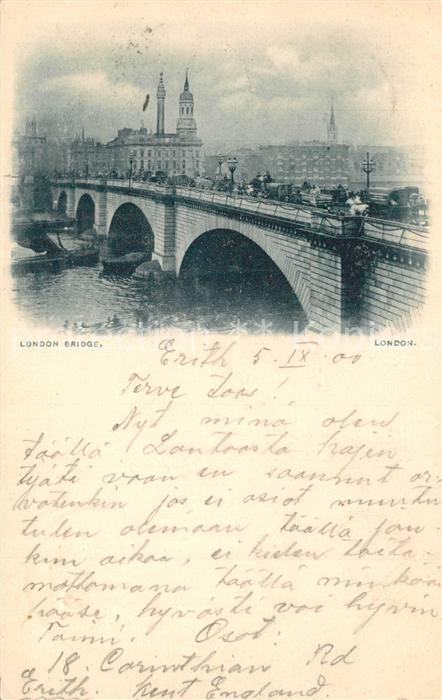 LONDON BRIDGE,
LONDON.
Erith 5. IX 00
Terve taas!
Nyt minä olen
täällä Lontoosta hajen
työtä vaan en saannut ar-
vatenkin jos ei asiat muutu
tulen olemaan täällä jon-
kin aikaa, ei kielen taita-
mattomana täällä minkää
pääse, hyvästi voi hyvin
Osot.
18. Corinthian Rd
Erith. Kent England.